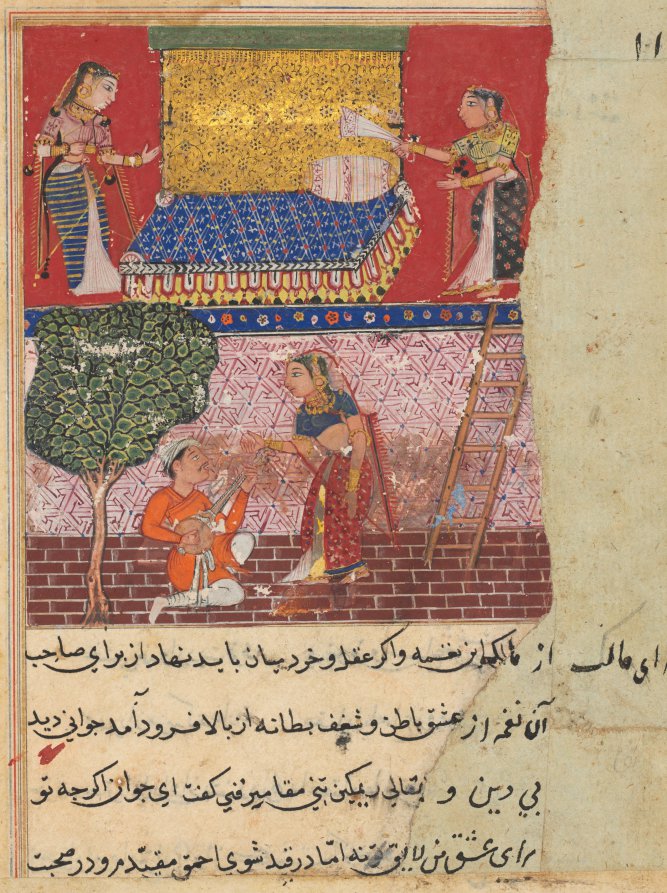 ١١
رای مالک از مالک این نغمه واکر عقل و خرد باید نهاد از برای صاحب
آن نغمه از عشق باطن و شغف بطانه از بالا فرود آمد جوانی دید
بی دین و بقالی فنی کفت ای جوان اکرجه تو
برای عشق من لایق نه اما در قید شوی احمق مقید در صحبت